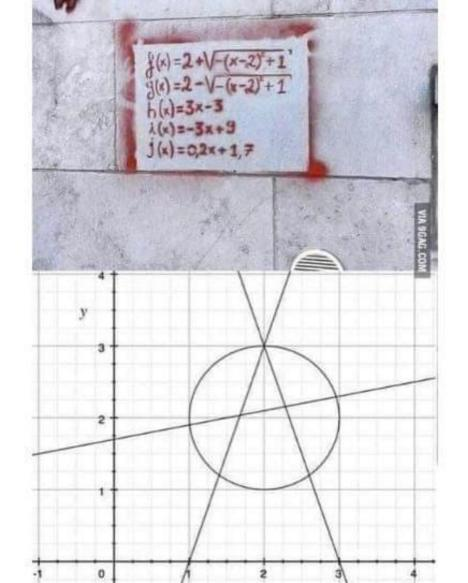 f(x)=2+√-(x-2)²+1
g(x)=2-√-(x-2)²+1
h(x)=3x-3
i(x)=-3x+9
j(x)=0,2x+1,7
VIA 9GAG.COM
4
y
3
2
1
-1 0 1 2 3 4